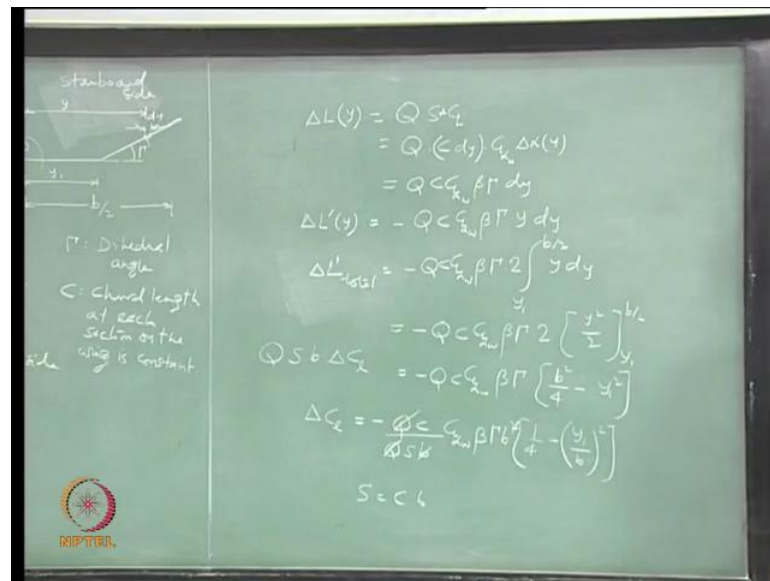 starboard
side
y
dy
Γ
y₁
b/2
Γ : Dihedral
angle
C : Chord length
at each
section on the
wing is constant
side
ΔL(y) = Q S* C_L
= Q · (c dy) · C_Lαw Δα(y)
= Q C C_Lαw β Γ dy
ΔL'(y) = - Q C C_Lαw β Γ y dy
ΔL'total = - Q C C_Lαw β Γ 2 ∫_{y₁}^{b/2} y dy
= - Q C C_Lαw β Γ 2 [y²/2]_{y₁}^{b/2}
Q S b ΔC_l = - Q C C_Lαw β Γ [b²/4 - y₁²]
ΔC_l = - Q C / Q S b C_Lαw β Γ b² [1/4 - (y₁/b)²]
S = C b
NPTEL